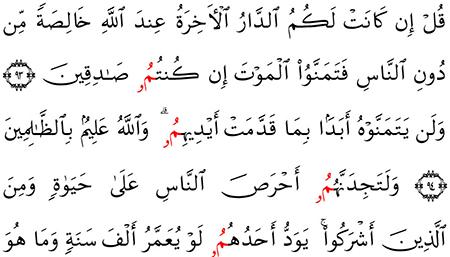 قُلْ إِن كَانَتْ لَكُمُ الدَّارُ الْأَخِرَةُ عِندَ اللَّهِ خَالِصَةً مِّن
دُونِ النَّاسِ فَتَمَنَّوُا الْمَوْتَ إِن كُنتُمُۥ صَـٰدِقِينَ ۝٩٣
وَلَن يَتَمَنَّوْهُ أَبَدًا بِمَا قَدَّمَتْ أَيْدِيهِمُۥ ۗ وَاللَّهُ عَلِيمٌ بِالظَّـٰلِمِينَ
۝٩٤ وَلَتَجِدَنَّهُمُۥ أَحْرَصَ النَّاسِ عَلَىٰ حَيَوٰةٍ وَمِنَ
الَّذِينَ أَشْرَكُوا ۚ يَوَدُّ أَحَدُهُمُۥ لَوْ يُعَمَّرُ أَلْفَ سَنَةٍ وَمَا هُوَ